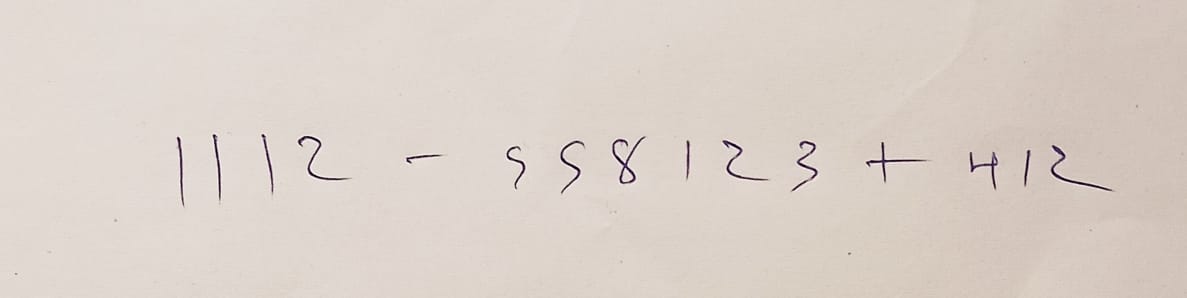 1112 - 558123 + 412